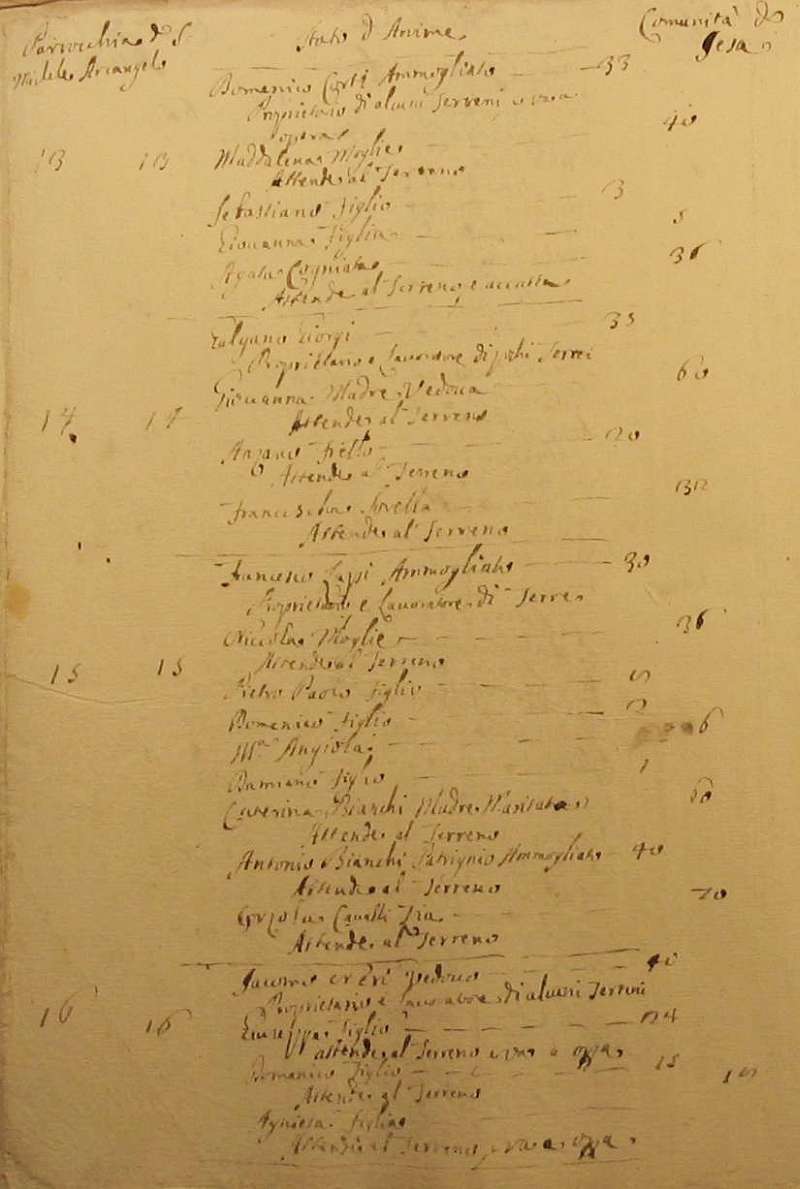 Parrocchia di S.
Michele Arcangelo
Stato d'Anime
Comunità di
Gesa
Domenico Corti Ammogliato 33
Proprietario di alcuni Terreni e va a
opera
13 13 Maddalena Moglie 40
Attende al Terreno
Sebastiano figlio 3
Giovanna figlia 5
Agata Cogniata 36
Attende al Terreno e accatta
Galgano Giorgi 35
Proprietario e Lavoratore di pochi Terreni
Giovanna Madre Vedova 60
14 14 Attende al Terreno
20
Attende al Terreno
Francesca Sorella
Attende al Terreno
Francesco Lappi Ammogliato 30
Proprietario e Lavoratore di Terre
Niccola Moglie 36
15 15 Attende al Terreno
Pietro Paolo figlio
Domenico figlio
M.a Angiola 6
Damiano figlio 1
Caterina Bianchi Madre Maritata 60
Attende al Terreno
Antonio Bianchi Patrignio Ammogliato 40
Attende al Terreno
Orzola Cavalli Zia 70
Attende al Terreno
Jacomo Vedovo 40
Proprietario e Lavoratore di alcuni Terreni
16 16 Giuseppe figlio 24
attende al Terreno e va a opra
Domenico figlio 15
Attende al Terreno
Agniesa figlia
Attende al Terreno e va a opra